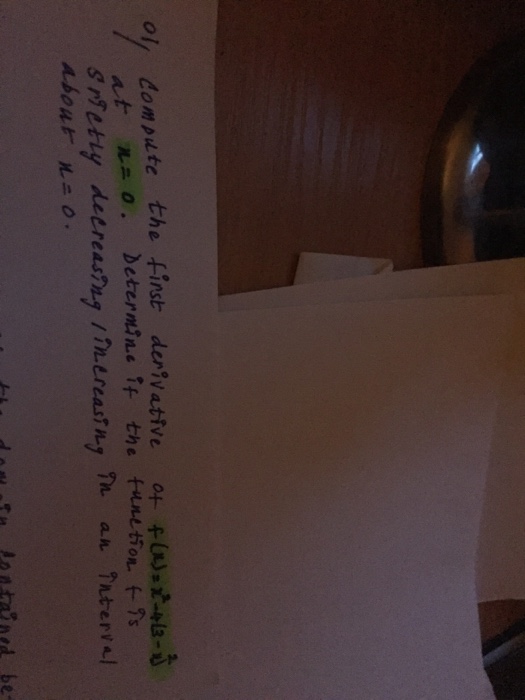 01, Compute the first derivative of f(x)=x²-4(3-x)²
at x=0. Determine if the function f is
strictly decreasing/increasing in an interval
about x=0.
the domain contained be